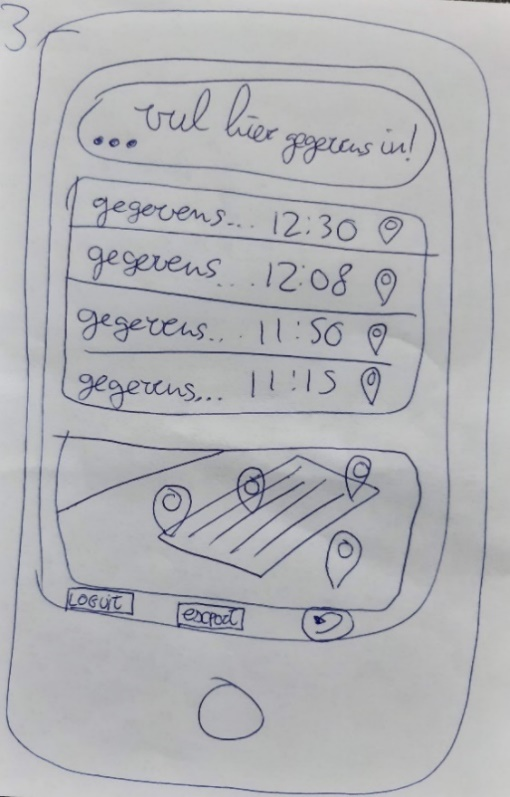 3
... vul hier gegevens in!
gegevens... 12:30
gegevens... 12:08
gegevens... 11:50
gegevens... 11:15
LOGUIT
export